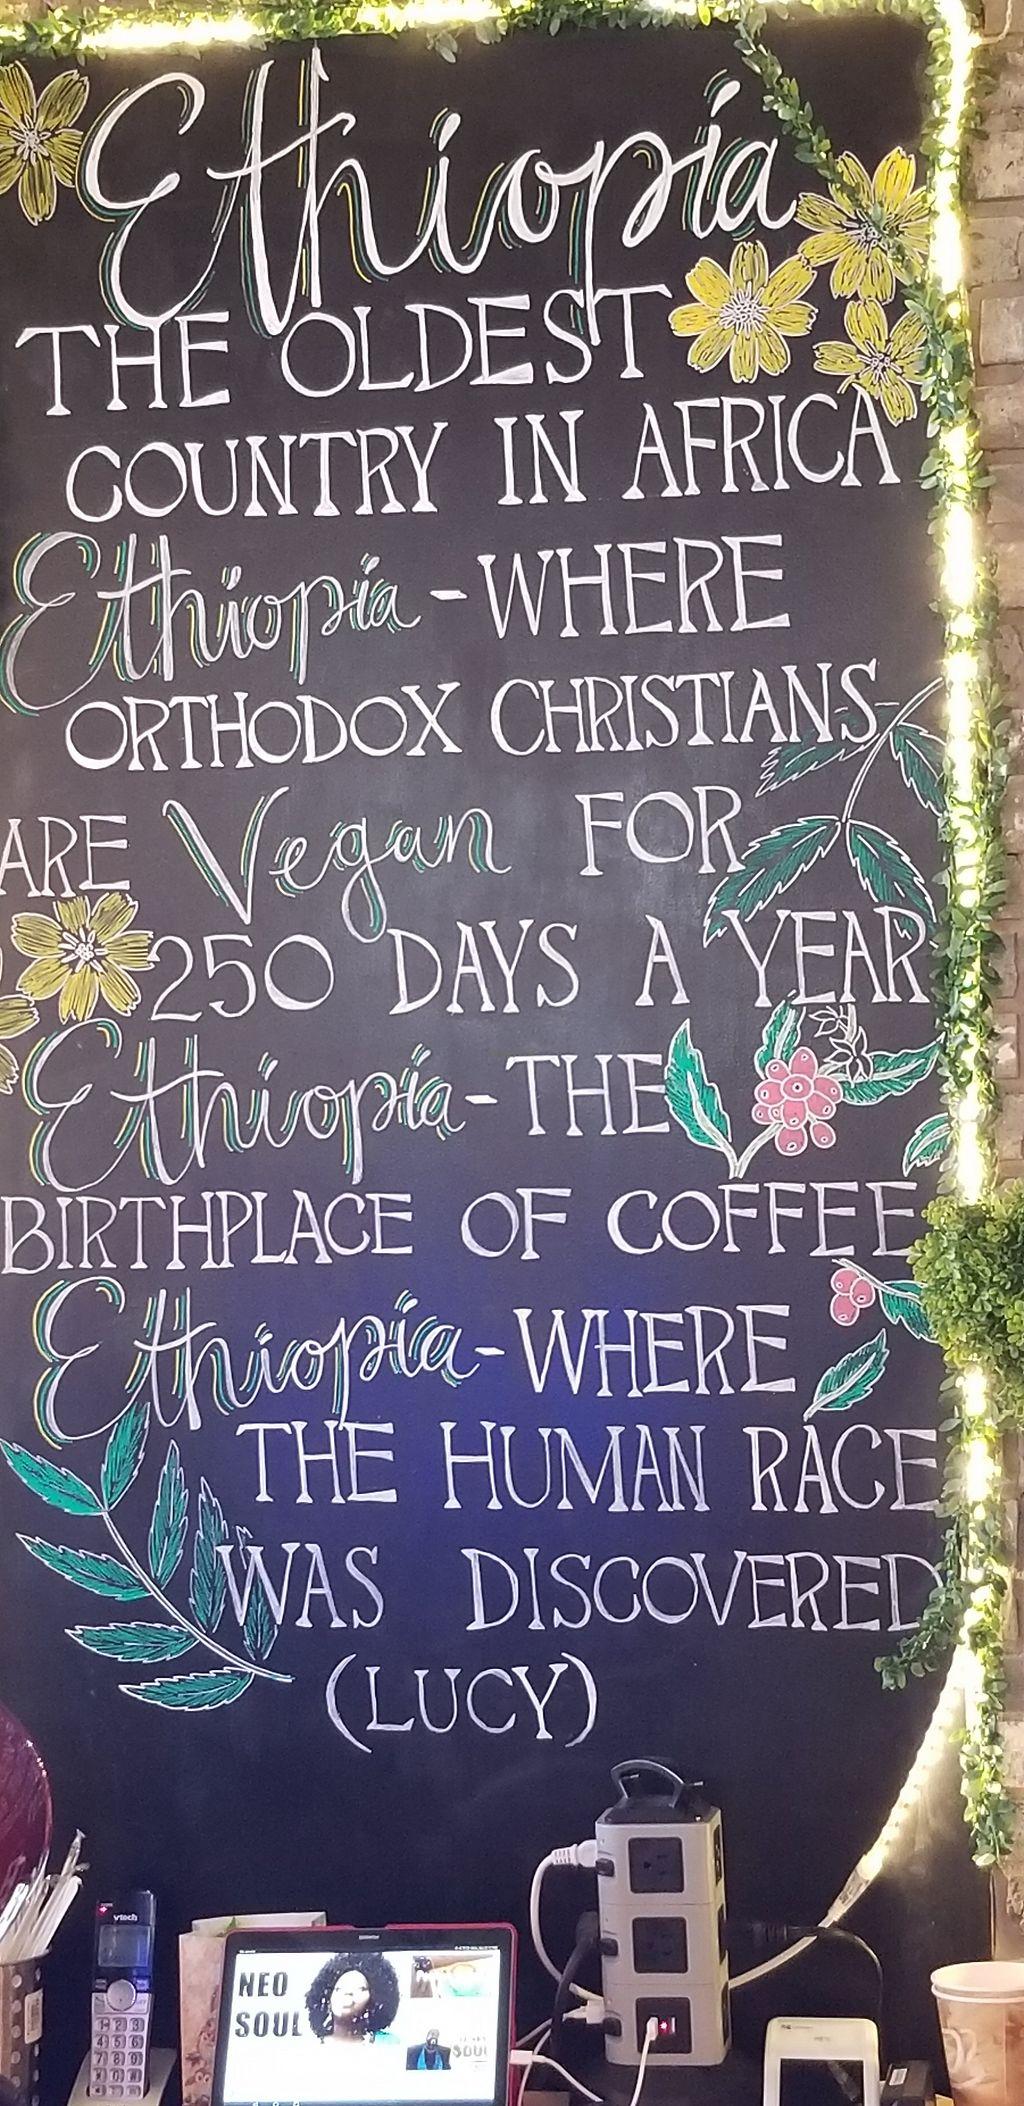 Ethiopia
THE OLDEST
COUNTRY IN AFRICA
Ethiopia - WHERE
ORTHODOX CHRISTIANS
ARE Vegan FOR
250 DAYS A YEAR
Ethiopia - THE
BIRTHPLACE OF COFFEE
Ethiopia - WHERE
THE HUMAN RACE
WAS DISCOVERED
(LUCY)
vtech
NEO
SOUL